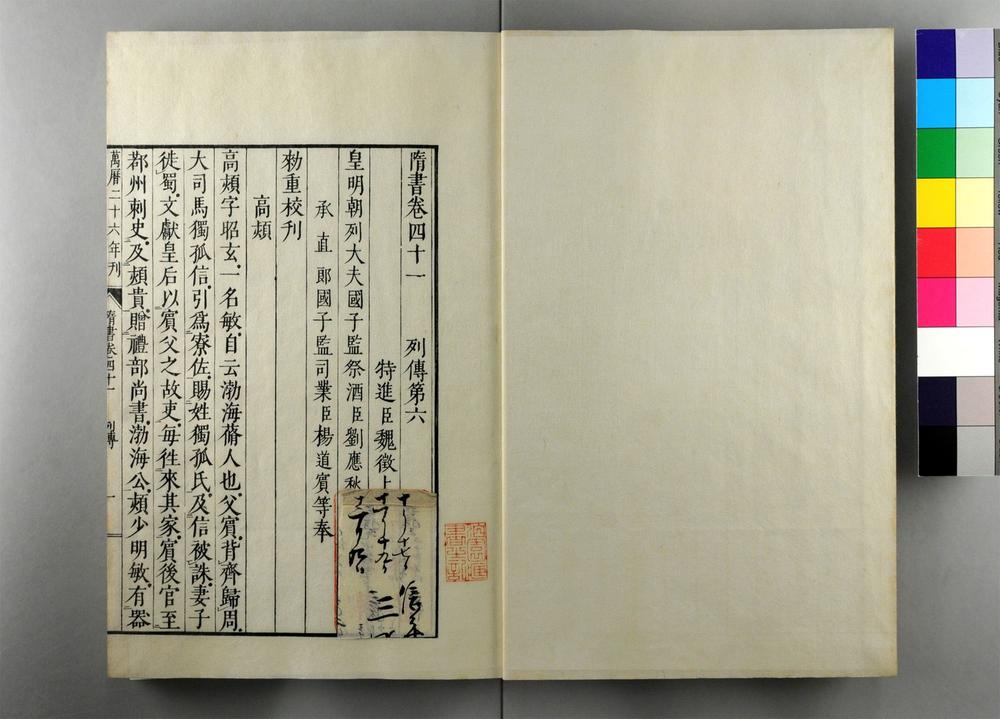 隋書卷四十一 列傳第六
特進臣魏徵上
皇明朝列大夫國子監祭酒臣劉應秋
承直郎國子監司業臣楊道賓等奉
勑重校刊
高熲
高熲字昭玄一名敏自云渤海蓚人也父賓背齊歸周
大司馬獨孤信引爲寮佐賜姓獨孤氏及信被誅妻子
徙蜀文獻皇后以賓父之故吏每徃來其家賓後官至
鄀州刺史及熲貴贈禮部尚書渤海公熲少明敏有器
萬曆二十六年刊 隋書卷四十一 列傳 一